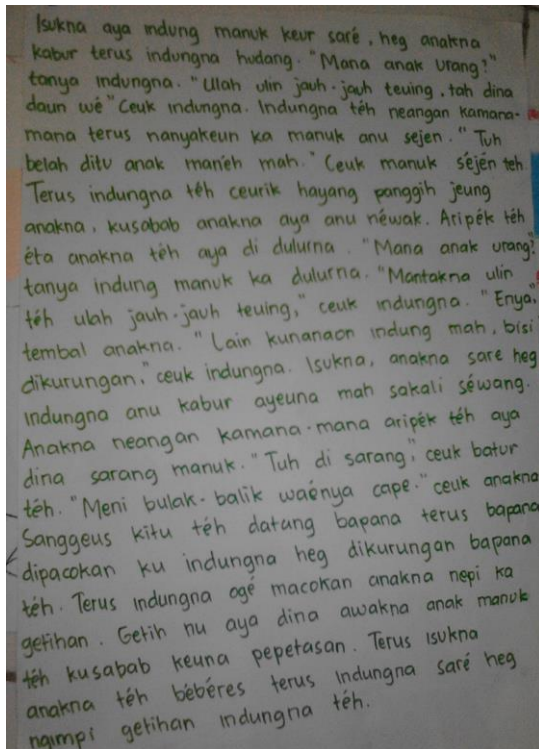 Isukna aya indung manuk keur saré, heg anakna
kabur terus indungna hudang. "Mana anak urang?"
tanya indungna. "Ulah ulin jauh-jauh teuing, tah dina
daun wé" Ceuk indungna. Indungna téh neangan kamana-
mana terus nanyakeun ka manuk anu sejen. "Tuh
belah ditu anak manéh mah." Ceuk manuk séjén teh.
Terus indungna téh ceurik hayang panggih jeung
anakna, kusabab anakna aya anu néwak. Aripék téh
éta anakna téh aya di dulurna. "Mana anak urang?"
tanya indung manuk ka dulurna. "Mantakna ulin
téh ulah jauh-jauh teuing," ceuk indungna. "Enya,"
tembal anakna. "Lain kunanaon indung mah, bisi
dikurungan," ceuk indungna. Isukna, anakna sare heg
indungna anu kabur ayeuna mah sakali séwang.
Anakna neangan kamana-mana aripék téh aya
dina sarang manuk. "Tuh di sarang", ceuk batur
téh. "Meni bulak-balik waénya cape." ceuk anakna
Sanggeus kitu téh datang bapana terus bapana
dipacokan ku indungna heg dikurungan bapana
téh. Terus indungna ogé macokan anakna nepi ka
getihan. Getih nu aya dina awakna anak manuk
téh kusabab keuna pepetasan. Terus isukna
anakna téh bébéres terus indungna saré heg
ngimpi getihan indungna téh.